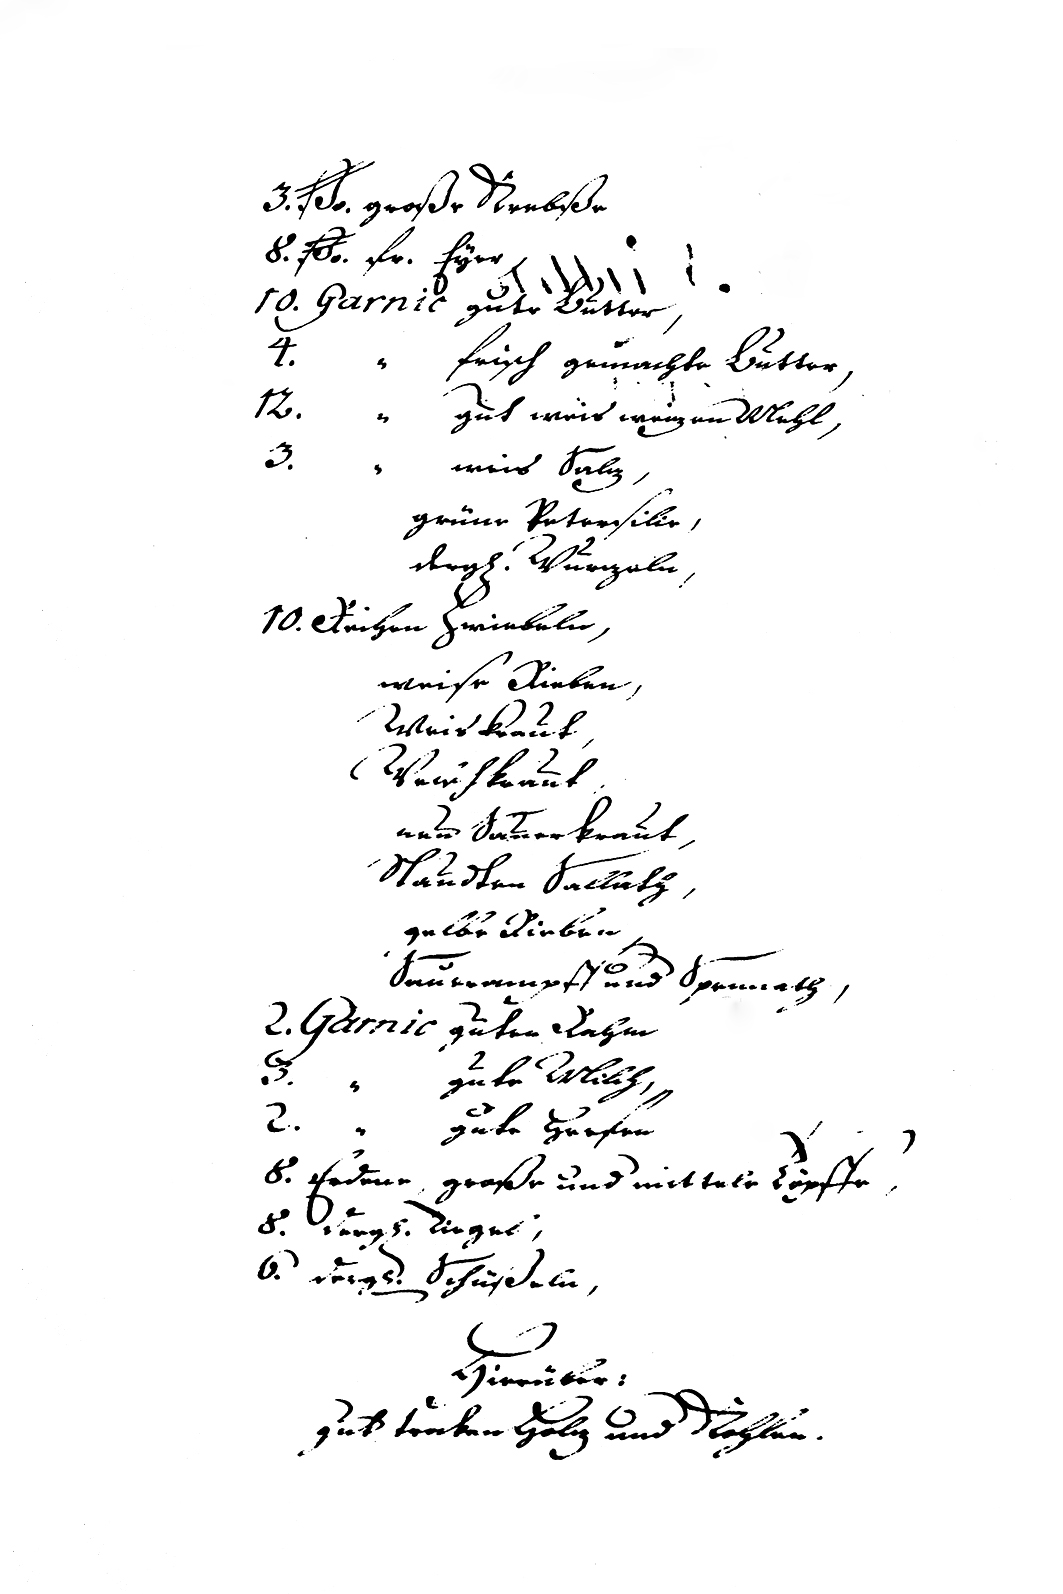 3. ßo. große Krebße
8. ßo. fr. Eÿer,
10. Garnic gute Butter,
4. " frisch gemachte Butter,
12. " gut weis weizen Mehl,
3. " weis Salz,
grüne Petersilie,
dergl. Wurzeln,
10. Reihen Zwiebeln,
weise Rieben,
Weis kraut,
kraut
neu Sauer kraut,
Staudten Sallath,
gelbe Rieben,
Sauerampff und Spennath,
2. Garnic guten Rahm
3. " gute Milch,
2. " gute Heefen
8. Erdene, große und mittele Töpffe,
8. dergl. Tiegel,
6. dergl. Schüßeln,
Hierüber:
gut trocken Holz und Kohlen.